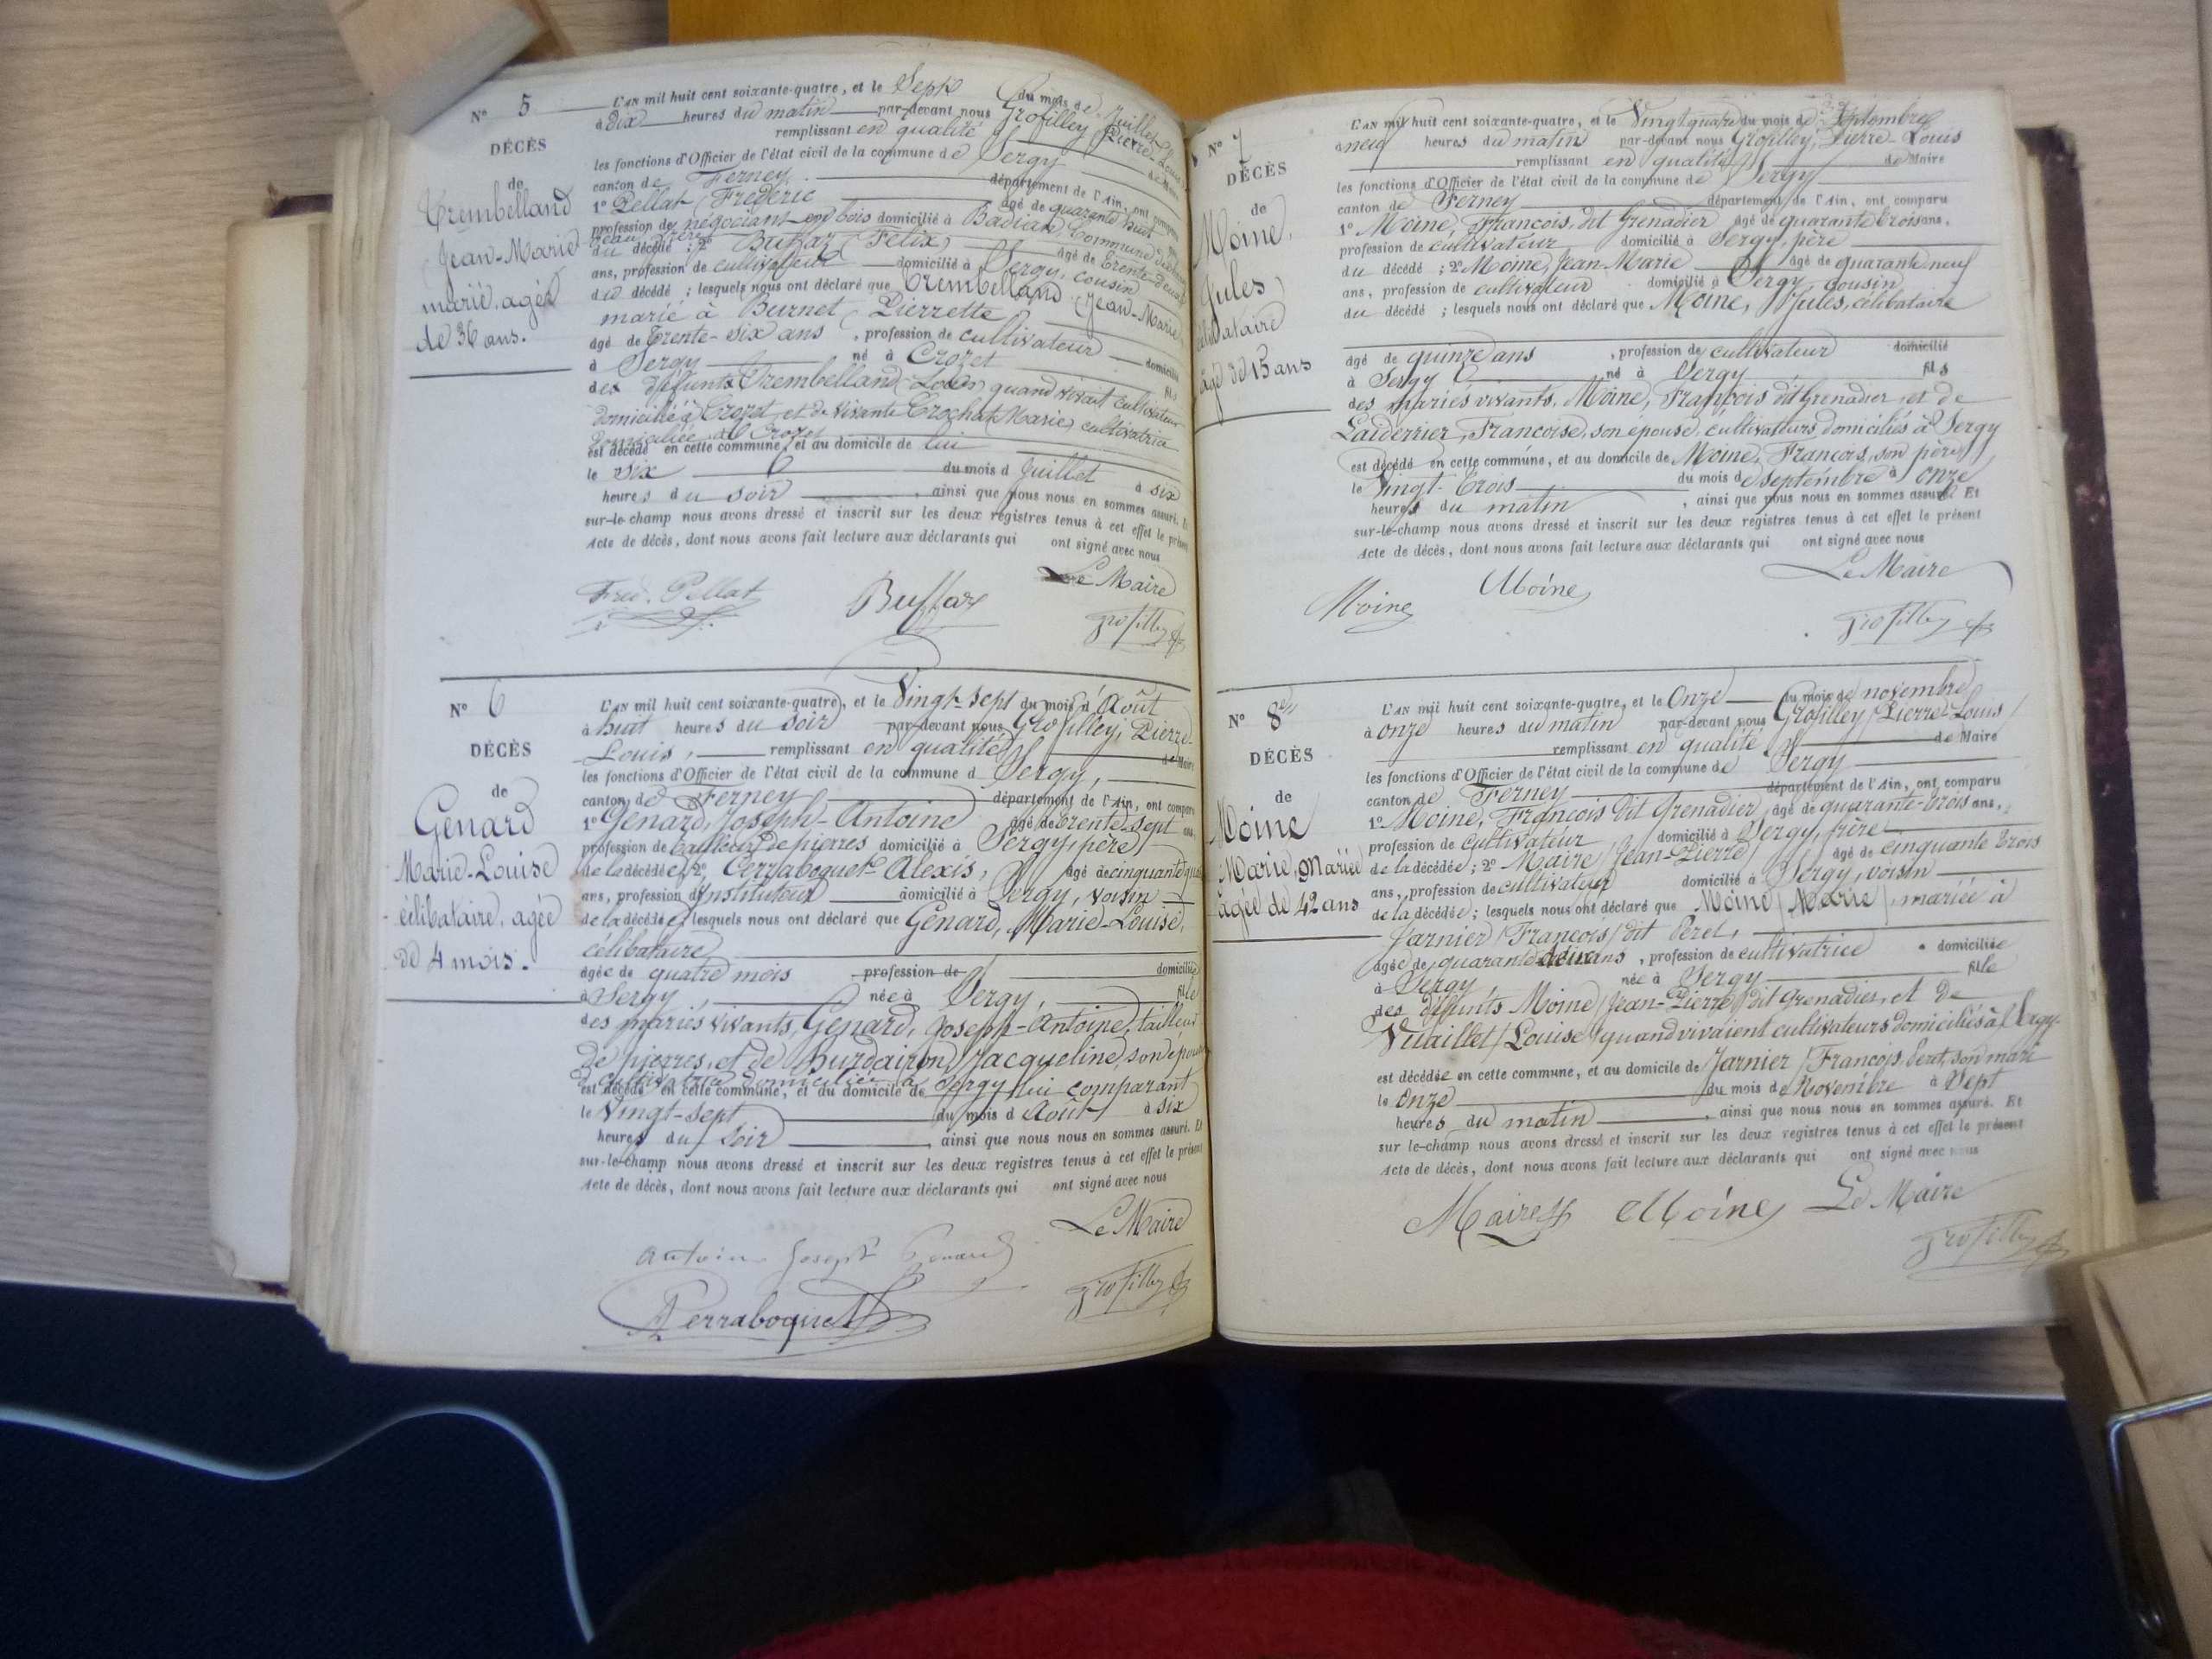 N° 5
DÉCÈS
de
Trembelland
Jean-Marie
marié, agé
de 36 ans.
L'AN mil huit cent soixante-quatre, et le Sept du mois de Juillet
à dix heures du matin par-devant nous Grosfilley Pierre-Louis,
remplissant en qualité de Maire
les fonctions d'Officier de l'état civil de la commune de Sergy
canton de Ferney département de l'Ain, ont comparu
1° Pellat (Frédéric agé de quarante huit
profession de négociant en bois domicilié à Badian commune
beau frère du décédé ; 2° Buffaz (Félix) agé de trente-deux
ans, profession de cultivateur domicilié à Sergy, cousin
du décédé ; lesquels nous ont déclaré que Trembelland (Jean-Marie
marié à Burnet, Pierrette
agé de trente-six ans , profession de cultivateur domicilié
à Sergy né à Crozet fils
des défunts Trembelland Louis quand vivait cultivateur
domicilié à Crozet, et de vivante Crochat Marie, cultivatrice
domiciliée à Crozet
est décédé en cette commune, et au domicile de lui
le six du mois d Juillet à six
heures du soir , ainsi que nous nous en sommes assuré. Et
sur-le-champ nous avons dressé et inscrit sur les deux registres tenus à cet effet le présent
Acte de décès, dont nous avons fait lecture aux déclarants qui ont signé avec nous
Le Maire
Fred. Pellat Buffaz Grosfilley
N° 6
DÉCÈS
de
Genard
Marie-Louise
célibataire, agée
de 4 mois.
L'AN mil huit cent soixante-quatre, et le Vingt-sept du mois d'Août
à huit heures du soir par-devant nous Grosfilley, Pierre-
Louis, remplissant en qualité de Maire
les fonctions d'Officier de l'état civil de la commune d Sergy,
canton de Ferney département de l'Ain, ont comparu
1° Genard, Joseph-Antoine agé de trente-sept ans
profession de tailleur de pierres domicilié à Sergy, père
de la décédée ; 2° Perraboquet Alexis, agé de cinquante
ans, profession d'Instituteur domicilié à Sergy, voisin
de la décédée ; lesquels nous ont déclaré que Genard, Marie-Louise,
célibataire
agée de quatre mois profession de domiciliée
à Sergy, née à Sergy, fille
des mariés vivants, Genard, Joseph-Antoine, tailleur
de pierres, et de Burdairon, Jacqueline, son épouse
cultivatrice domiciliés à Sergy
est décédé en cette commune, et au domicile de lui comparant
le Vingt-sept du mois d Août à six
heures du soir , ainsi que nous nous en sommes assuré. Et
sur-le-champ nous avons dressé et inscrit sur les deux registres tenus à cet effet le présent
Acte de décès, dont nous avons fait lecture aux déclarants qui ont signé avec nous
Le Maire
Antoine Joseph Genard Grosfilley
A Perraboquet
N° 7
DÉCÈS
de
Moine,
Jules,
célibataire
agé de 15 ans
L'AN mil huit cent soixante-quatre, et le Vingt quatre du mois de Septembre
à neuf heures du matin par-devant nous Grosfilley, Pierre-Louis
remplissant en qualité de Maire
les fonctions d'Officier de l'état civil de la commune de Sergy
canton de Ferney département de l'Ain, ont comparu
1° Moine, François, dit Grenadier agé de quarante trois ans,
profession de cultivateur domicilié à Sergy, père
du décédé ; 2° Moine, Jean-Marie agé de quarante neuf
ans, profession de cultivateur domicilié à Sergy, cousin
du décédé ; lesquels nous ont déclaré que Moine, Jules, célibataire
agé de quinze ans , profession de cultivateur domicilié
à Sergy né à Sergy fils
des mariés vivants, Moine, François dit Grenadier, et de
Larderrier, Françoise, son épouse, cultivateurs domiciliés à Sergy
est décédé en cette commune, et au domicile de Moine, François, son père
le vingt-trois du mois de septembre à onze
heures du matin , ainsi que nous nous en sommes assuré. Et
sur-le-champ nous avons dressé et inscrit sur les deux registres tenus à cet effet le présent
Acte de décès, dont nous avons fait lecture aux déclarants qui ont signé avec nous
Le Maire
Moine Moine Grosfilley
N° 8
DÉCÈS
de
Moine
Marie, mariée
agée de 42 ans
L'AN mil huit cent soixante-quatre, et le Onze du mois de novembre
à onze heures du matin par-devant nous Grosfilley (Pierre-Louis)
remplissant en qualité de Maire
les fonctions d'Officier de l'état civil de la commune de Sergy
canton de Ferney département de l'Ain, ont comparu
1° Moine, François dit Grenadier, agé de quarante-trois ans,
profession de cultivateur domicilié à Sergy, frère
de la décédée ; 2° Maire (Jean-Pierre) agé de cinquante trois
ans, profession de cultivateur domicilié à Sergy, voisin
de la décédée ; lesquels nous ont déclaré que Moine (Marie), mariée à
Jarnier (François) dit Peret,
agée de quarante deux ans , profession de cultivatrice domiciliée
à Sergy, née à Sergy fille
des défunts Moine (Jean-Pierre) dit Grenadier, et de
Vuaillet (Louise) quand vivaient cultivateurs domiciliés à Sergy.
est décédée en cette commune, et au domicile de Jarnier (François) Peret, son mari
le Onze du mois de Novembre à Sept
heures du matin , ainsi que nous nous en sommes assuré. Et
sur le-champ nous avons dressé et inscrit sur les deux registres tenus à cet effet le présent
Acte de décès, dont nous avons fait lecture aux déclarants qui ont signé avec nous
Maire Moine Le Maire
Grosfilley